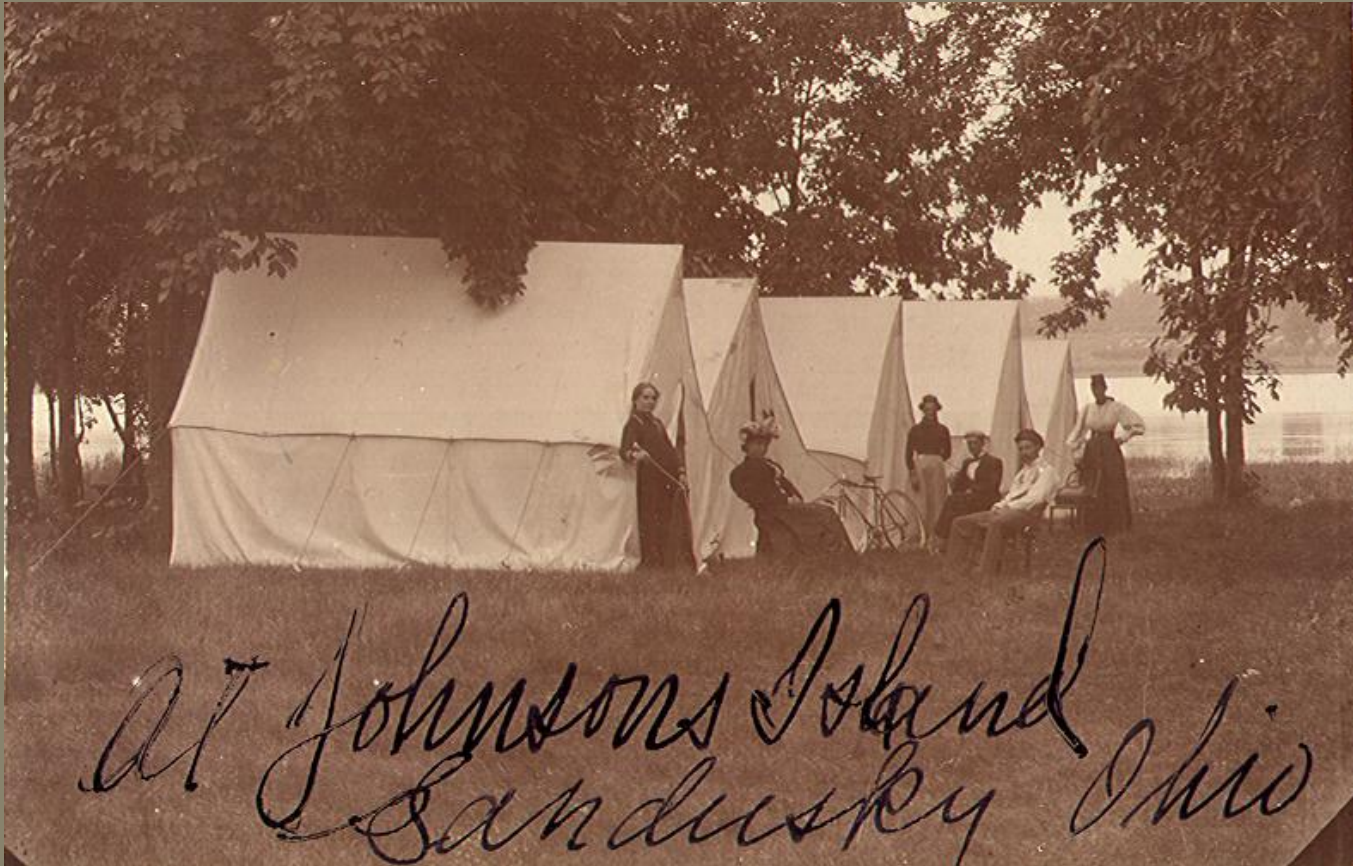 At Johnsons Island
Sandusky Ohio